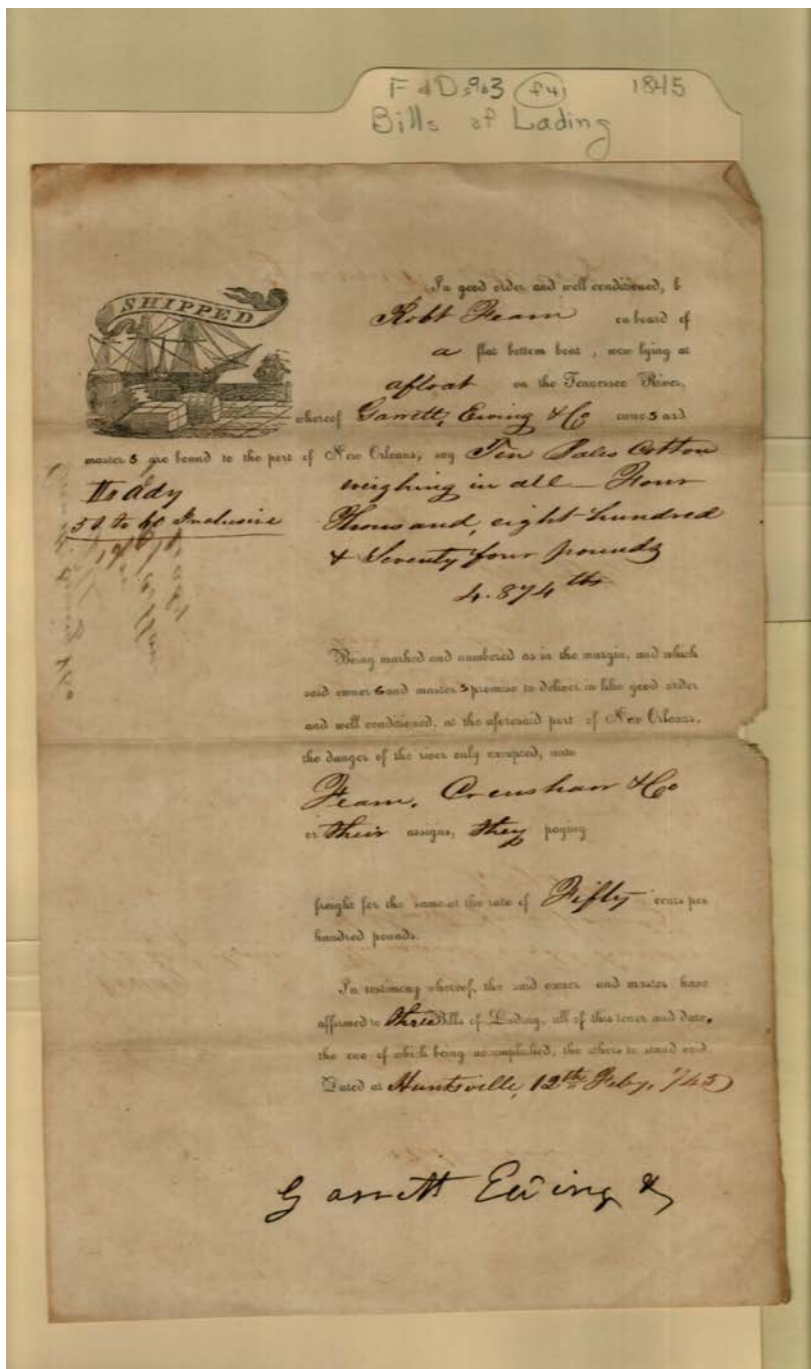 F & D 963 (f4) 1845
Bills of Lading
SHIPPED
In good order and well conditioned, b
Robt Fearn on board of
a flat bottom boat, now lying at
afloat on the Tennessee River,
whereof Garrett, Ewing & Co owners and
masters are bound to the port of New Orleans, say Ten Bales Cotton
weighing in all Four
51 to 60 Inclusive Thousand, eight hundred
& Seventy four pounds
4.874 lbs
Being marked and numbered as in the margin, and which
said owners and masters promise to deliver in like good order
and well conditioned, at the aforesaid port of New Orleans,
the danger of the river only excepted, unto
Fearn, Crenshaw & Co
or their assigns, they paying
freight for the same at the rate of Fifty cents per
hundred pounds.
In testimony whereof, the said owner and master have
affirmed to three Bills of Lading, all of this tenor and date,
the one of which being accomplished, the others to stand void.
Dated at Huntsville, 12th Feby, 1/45
Garrett Ewing &